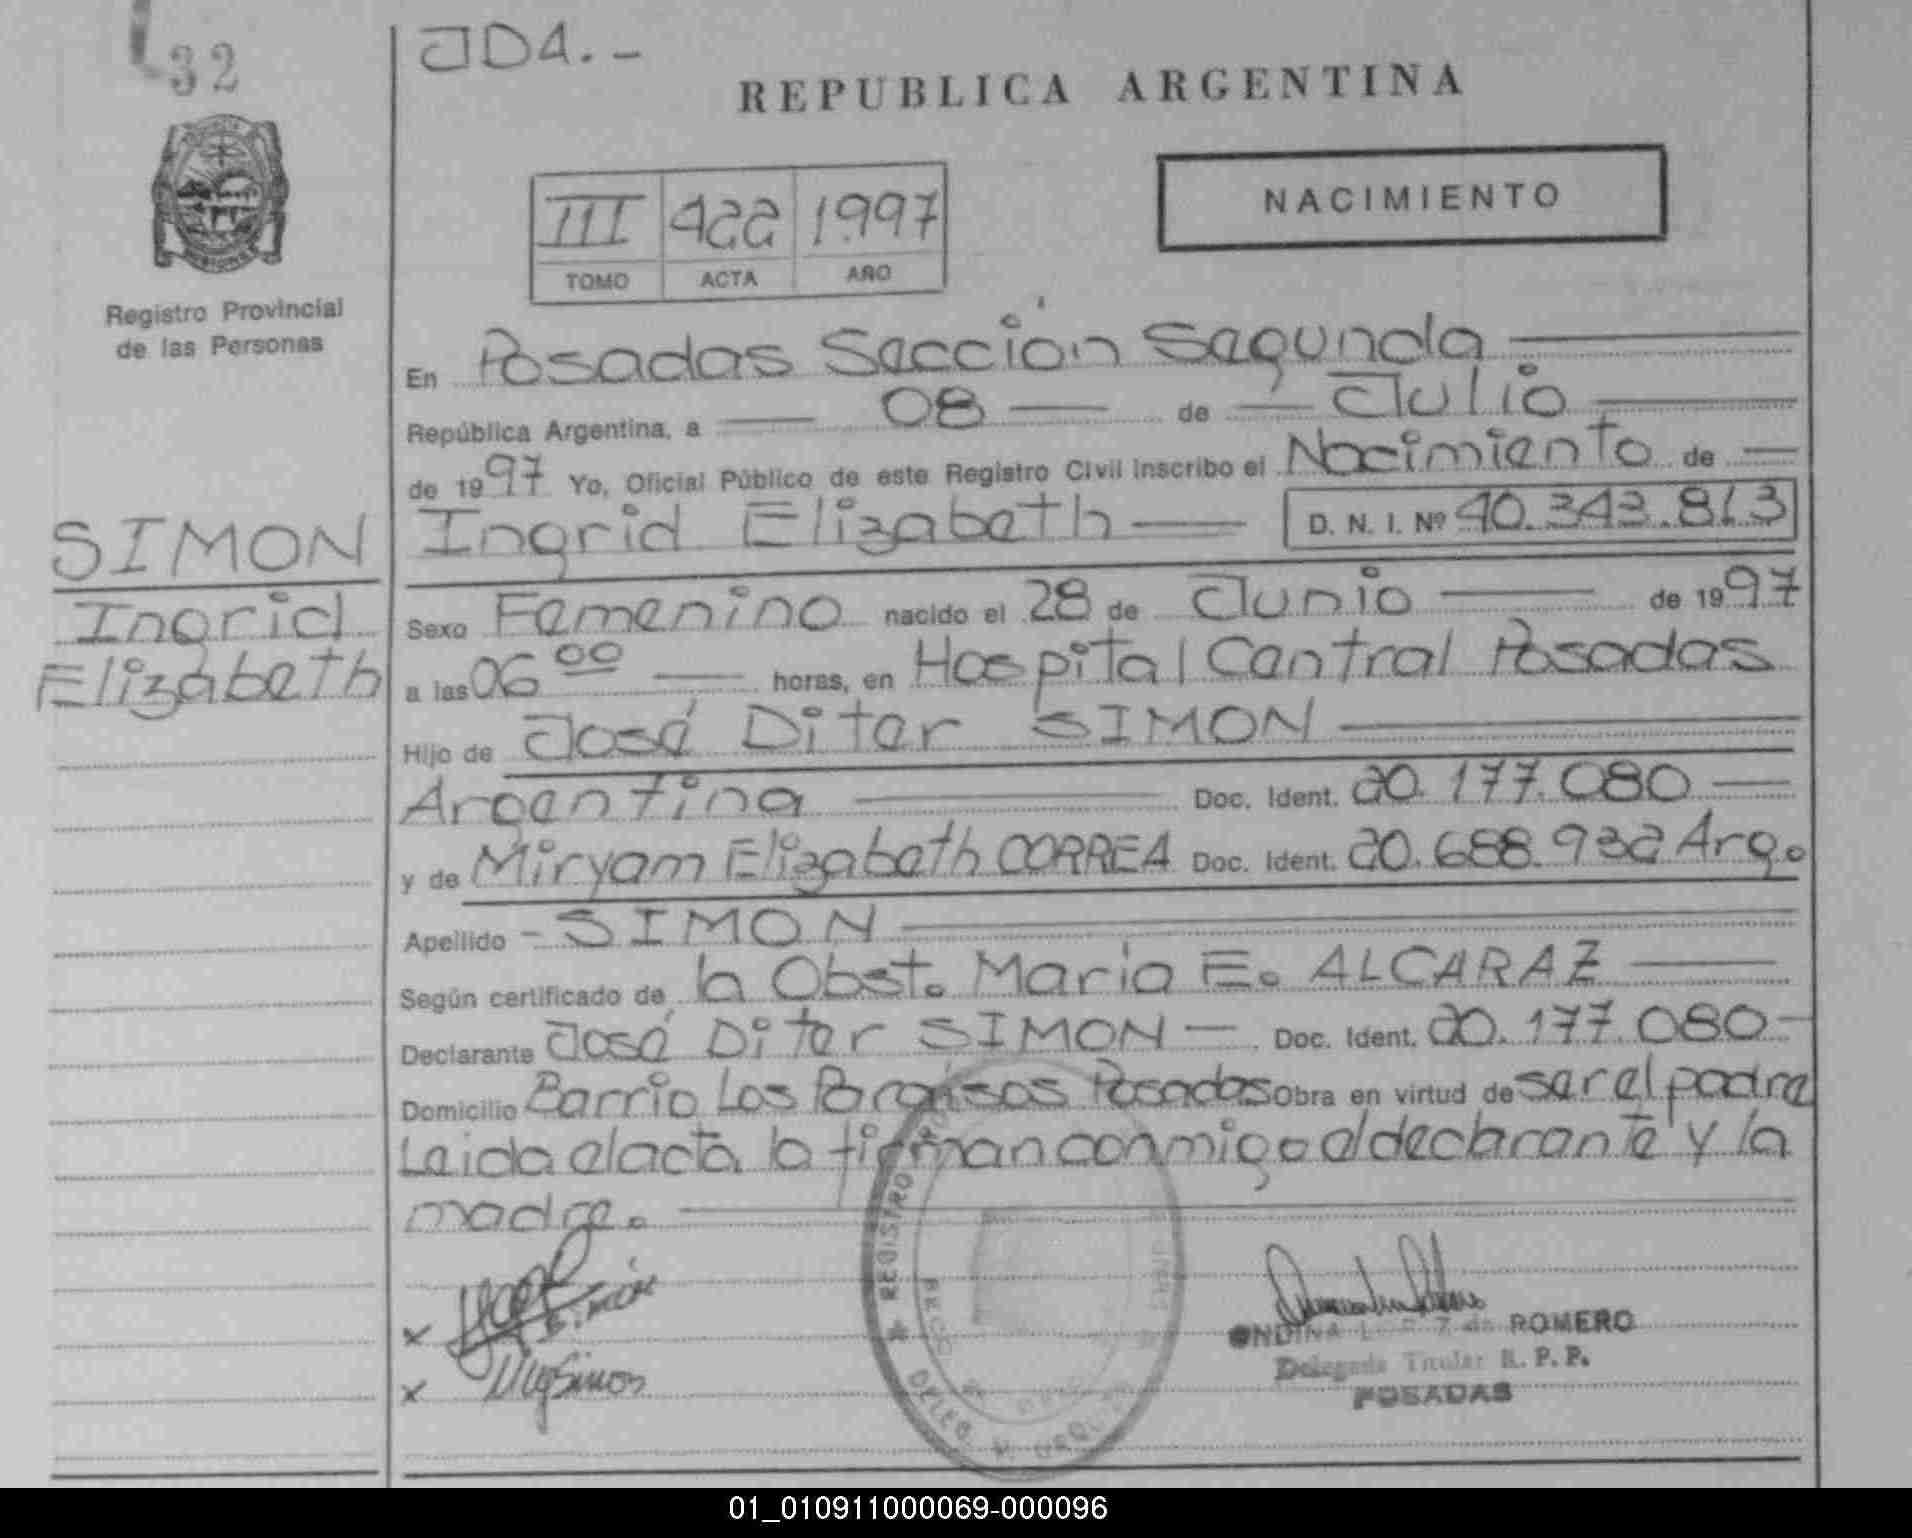 32
JDA.-
REPUBLICA ARGENTINA
NACIMIENTO
III 422 1.997
TOMO ACTA AÑO
Registro Provincial
de las Personas
En Posadas Sección Segunda
República Argentina, a 08 de Julio
de 1997 Yo, Oficial Público de este Registro Civil inscribo el Nacimiento de
Ingrid Elizabeth D. N. I. Nº 40.343.813
SIMON
Ingrid
Elizabeth
Sexo Femenino nacido el 28 de Junio de 1997
a las 06 00 horas, en Hospital Central Posadas
Hijo de José Diter SIMON
Argentina Doc. Ident. 20.177.080
y de Miryam Elizabeth CORREA Doc. Ident. 20.688.932 Arg.
Apellido - SIMON
Según certificado de la Obst. Maria E. ALCARAZ
Declarante José Diter SIMON Doc. Ident. 20.177.080-
Domicilio Barrio Los Paraísos Posadas Obra en virtud de ser el padre
Leida el acta la firman conmigo el declarante y la
madre.
x
x
ROMERO
Delegada Titular R. P. P.
POSADAS
REGISTRO
DELEG.
01_010911000069-000096